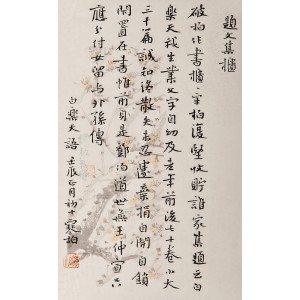 題文集櫃
破柏作書櫃々牢柏復堅收貯誰家集題云白
樂天我生業文字自幼及老年前後七十卷小大
三千篇誠知終散失未忍遽棄捐自開自鎖
閉置在書帷前身是鄧伯道世無王仲宣只
應分付女留與外孫傳
白樂天語 壬辰正月初十